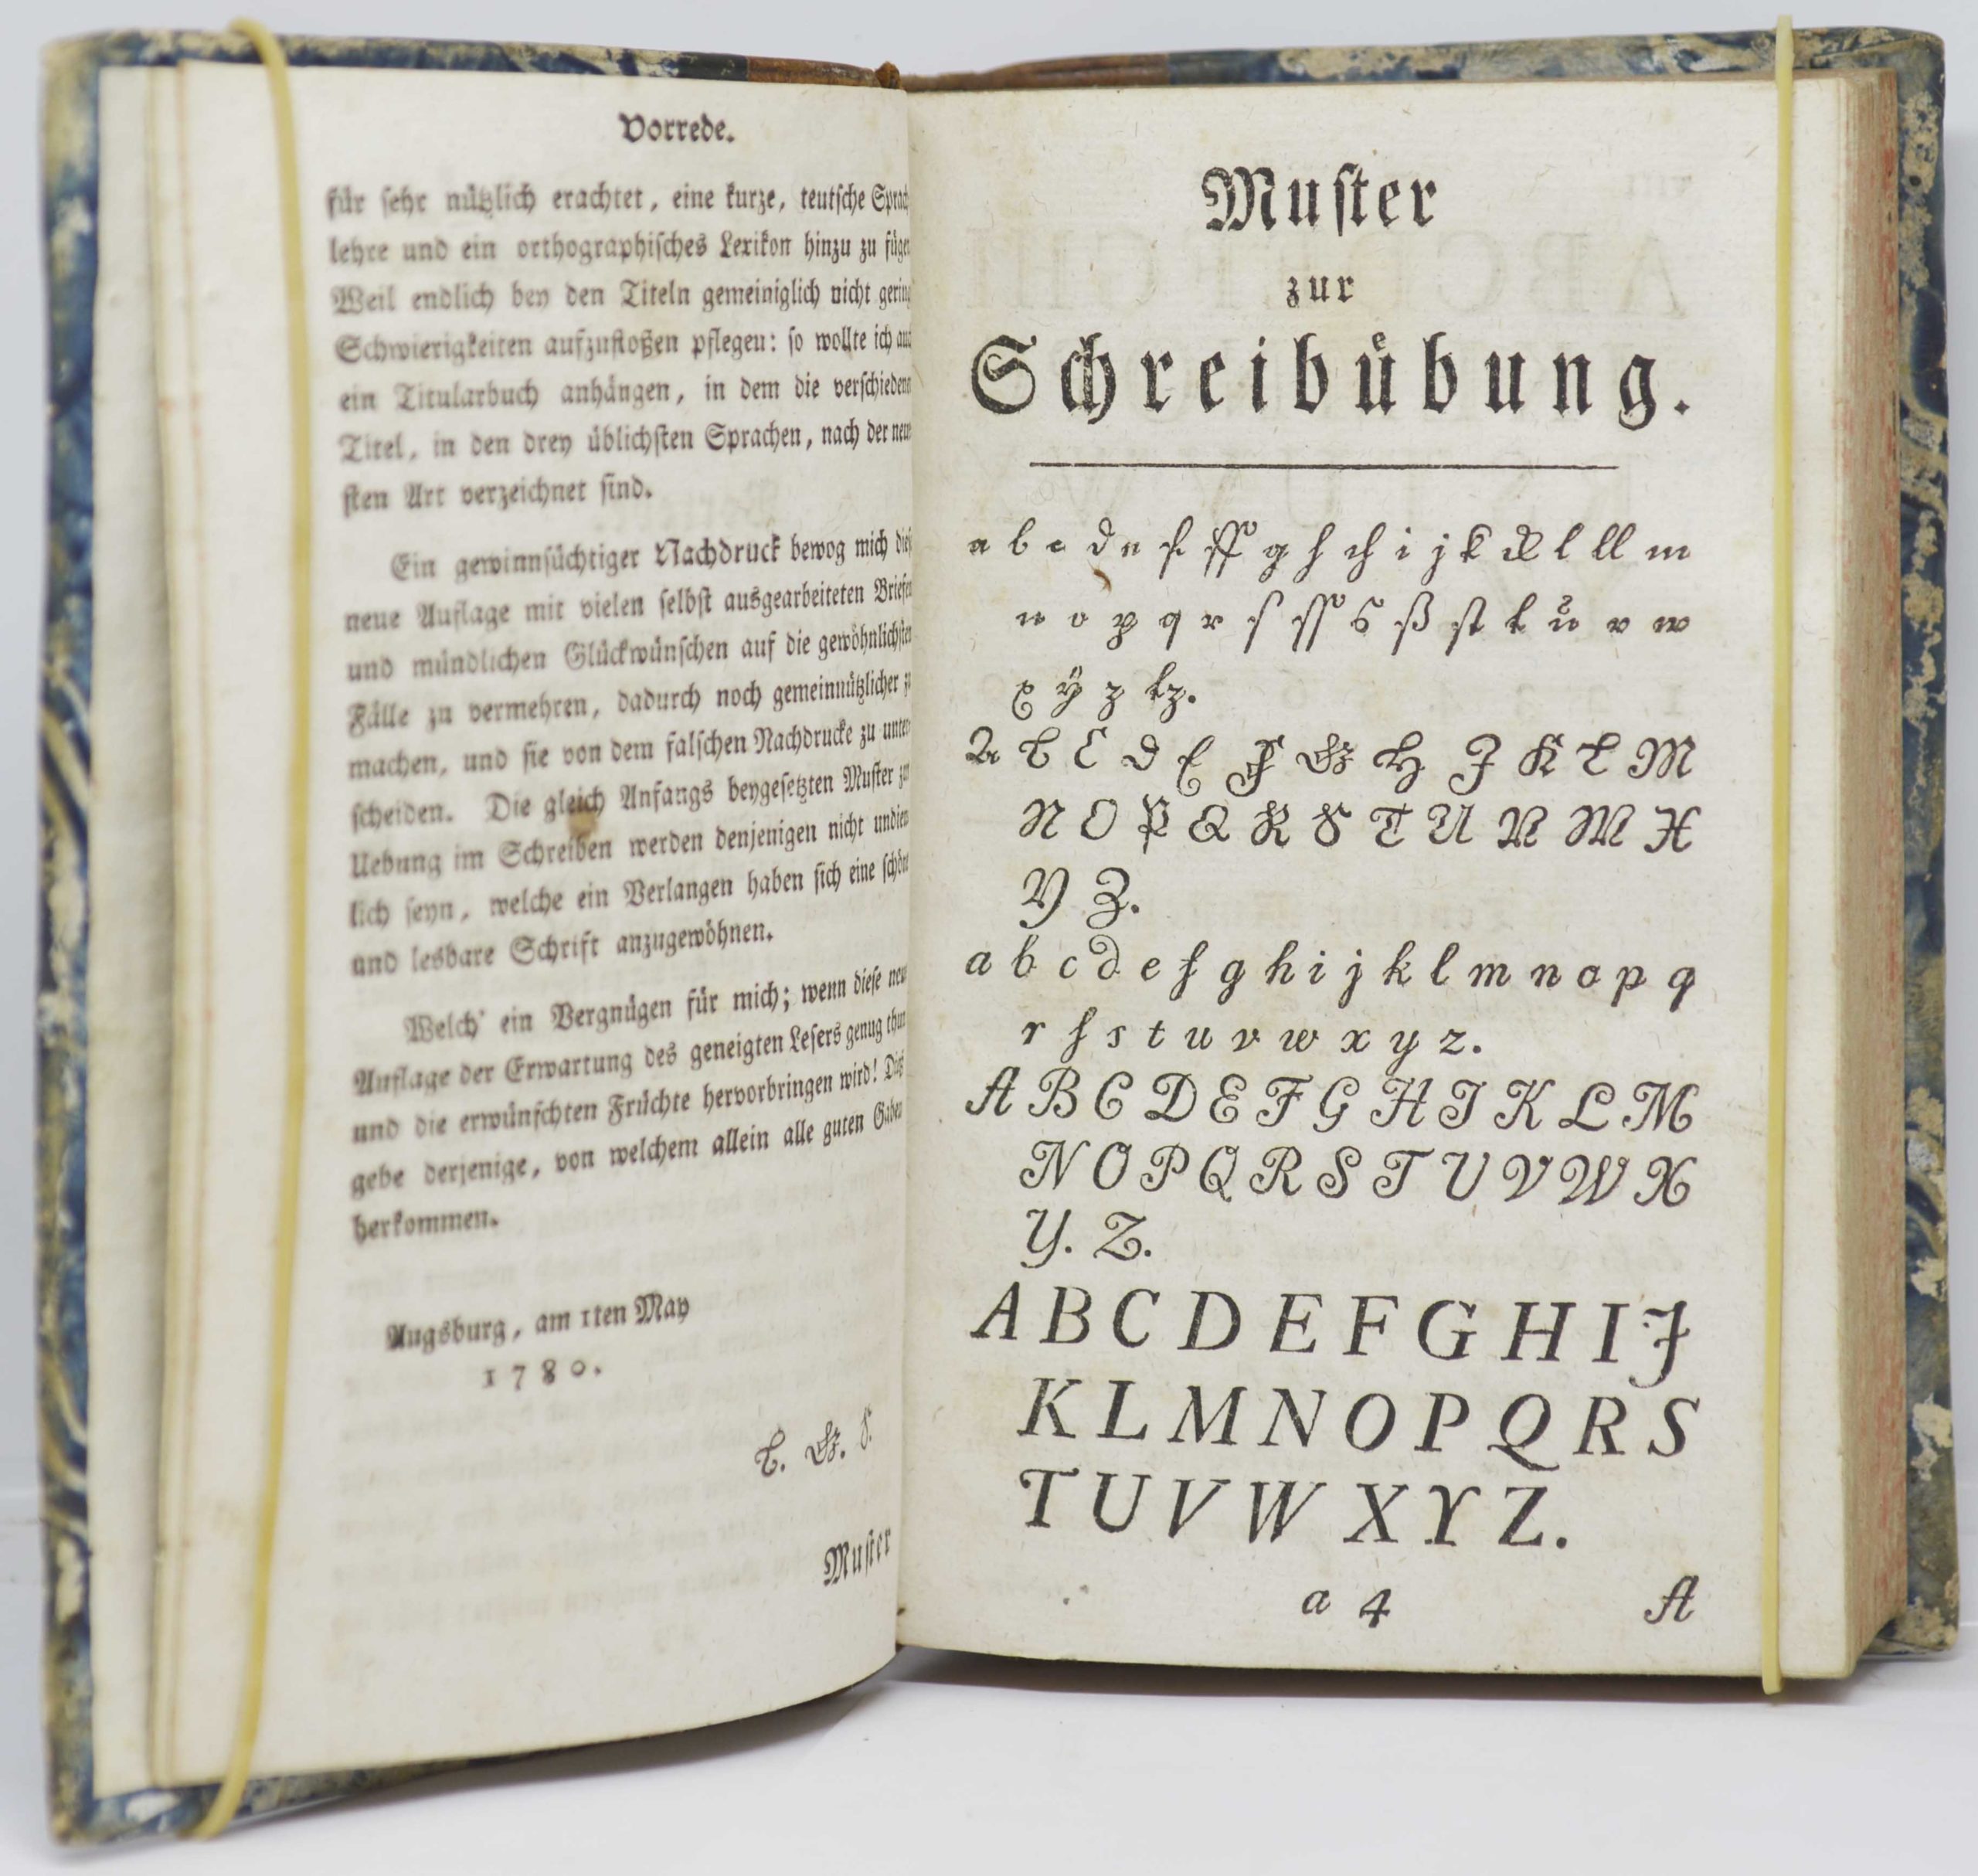 Vorrede.
für ſehr nützlich erachtet, eine kurze, teutſche Sprach
lehre und ein orthographiſches Lexikon hinzu zu füge
Weil endlich bey den Titeln gemeiniglich nicht gering
Schwierigkeiten aufzuſtoßen pflegen: ſo wollte ich
ein Titularbuch anhängen, in dem die verſchieden
Titel, in den drey üblichſten Sprachen, nach der neu
ſten Art verzeichnet ſind.
Ein gewinnſüchtiger Nachdruck bewog mich
neue Auflage mit vielen ſelbſt ausgearbeiteten Briefe
und mündlichen Glückwünſchen auf die gewöhnlichſten
Fälle zu vermehren, dadurch noch gemeinnützlicher
machen, und ſie von dem falſchen Nachdrucke zu unter
ſcheiden. Die gleich Anfangs beygeſetzten Muſter
Uebung im Schreiben werden denjenigen nicht undien
lich ſeyn, welche ein Verlangen haben ſich eine ſchöne
und lesbare Schrift anzugewöhnen.
Welch' ein Vergnügen für mich; wenn dieſe neu
Auflage der Erwartung des geneigten Leſers genug thun
und die erwünſchten Früchte hervorbringen wird! Dieß
gebe derjenige, von welchem allein alle guten Gaben
herkommen.
Augsburg, am 1ten May
1780.
B. G. S.
Muſter
Muſter
zur
Schreibübung.
a b c d e f ff g h ch i j k ck l ll m
n o p q r ſ ſſ s ß ſt t ů v w
x ÿ z tz.
A B C D E F G H J K L M
N O P Q R S T U V W X
Y Z.
a b c d e f g h i j k l m n o p q
r ſ s t u v w x y z.
A B C D E F G H J K L M
N O P Q R S T U V W X
Y. Z.
A B C D E F G H I J
K L M N O P Q R S
T U V W X Y Z.
a 4 A